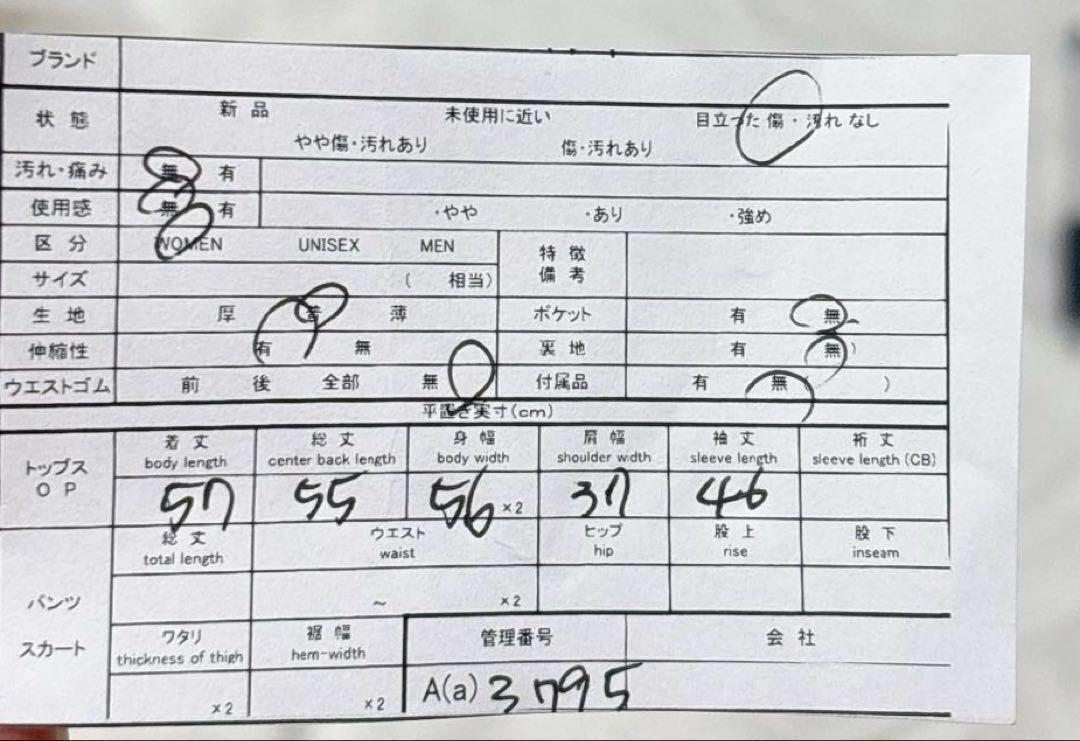 ブランド
状態 新品 未使用に近い 目立った傷・汚れなし
やや傷・汚れあり 傷・汚れあり
汚れ・痛み 無 有
使用感 無 有 ・やや ・あり ・強め
区分 WOMEN UNISEX MEN 特徴
備考
サイズ ( 相当)
生地 厚 普 薄 ポケット 有 無
伸縮性 有 無 裏地 有 無)
ウエストゴム 前 後 全部 無 付属品 有 無( )
平置き実寸(cm)
トップス
OP
着丈 総丈 身幅 肩幅 袖丈 裄丈
body length center back length body width shoulder width sleeve length sleeve length (CB)
57 55 56 ×2 37 46
総丈 ウエスト ヒップ 股上 股下
total length waist hip rise inseam
パンツ ~ ×2
スカート
ワタリ 裾幅 管理番号 会社
thickness of thigh hem-width
×2 ×2 A(a) 3795